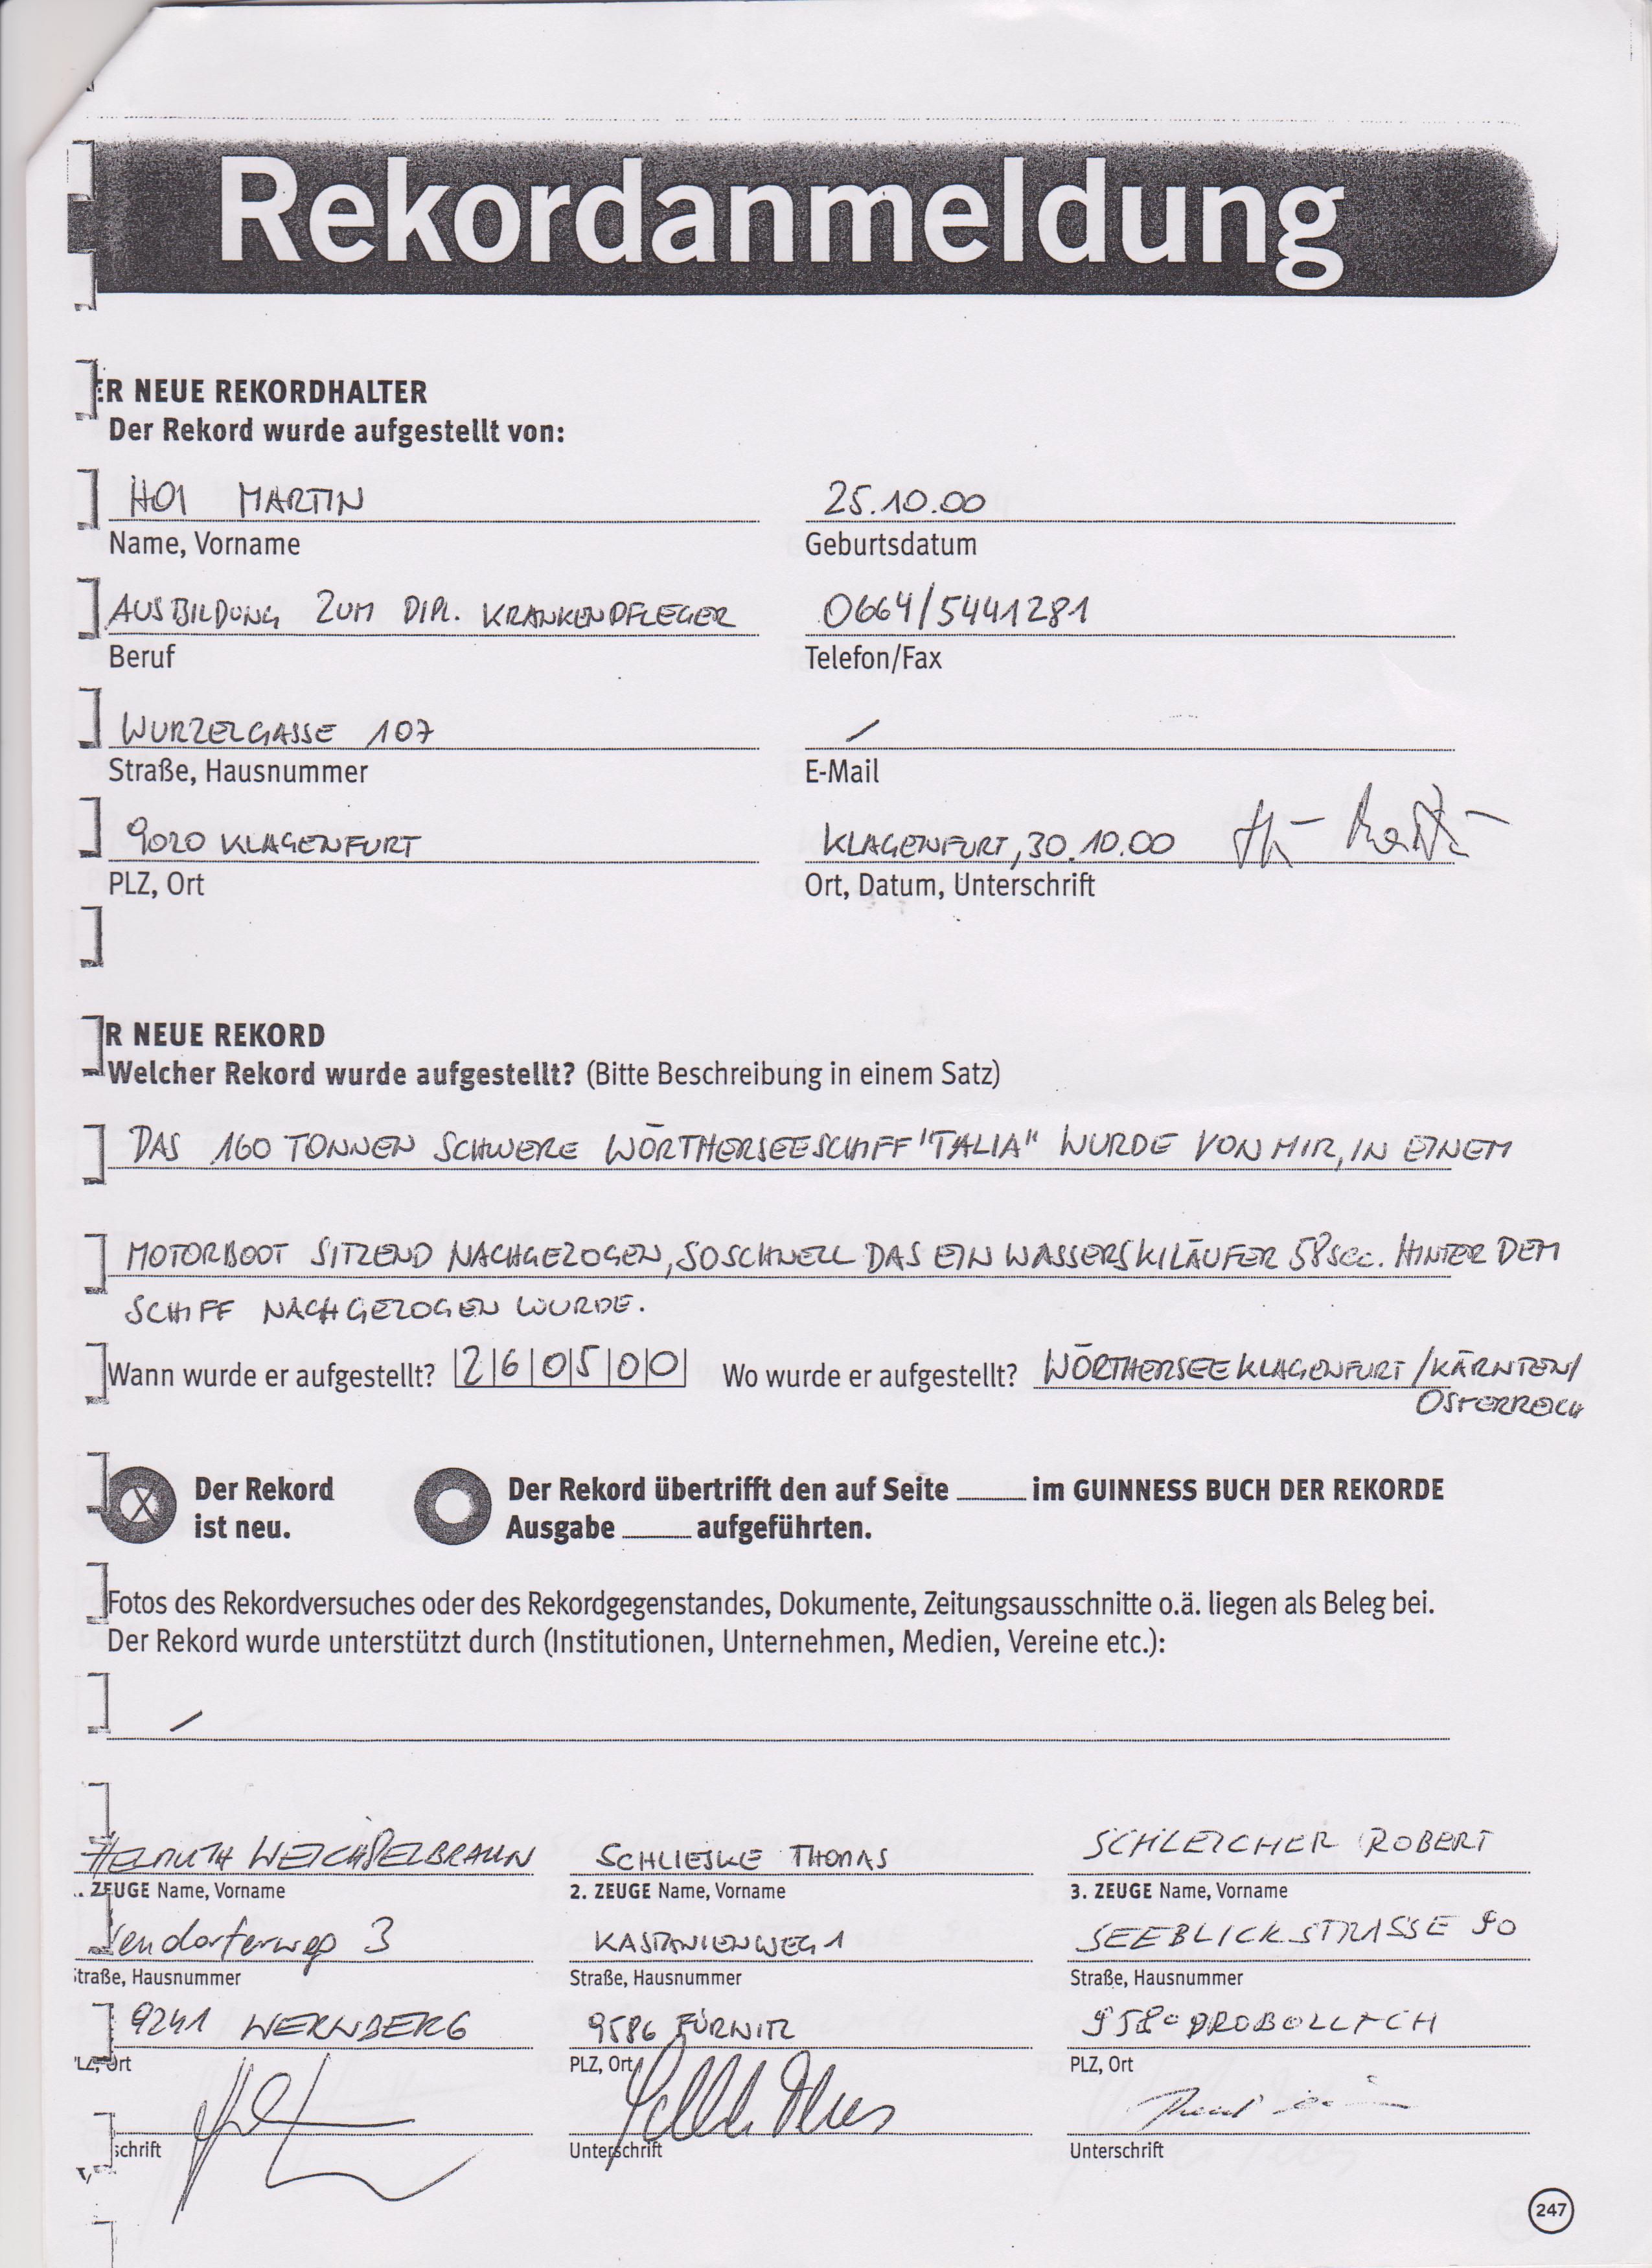 Rekordanmeldung
ER NEUE REKORDHALTER
Der Rekord wurde aufgestellt von:
HOI MARTIN 25.10.00
Name, Vorname Geburtsdatum
AUSBILDUNG ZUM DIPL. KRANKENPFLEGER 0664/5441281
Beruf Telefon/Fax
WURZELGASSE 107 /
Straße, Hausnummer E-Mail
9020 KLAGENFURT KLAGENFURT, 30.10.00
PLZ, Ort Ort, Datum, Unterschrift
R NEUE REKORD
Welcher Rekord wurde aufgestellt? (Bitte Beschreibung in einem Satz)
DAS 160 TONNEN SCHWERE WÖRTHERSEESCHIFF "TALIA" WURDE VON MIR, IN EINEM
MOTORBOOT SITZEND NACHGEZOGEN, SO SCHNELL DAS EIN WASSERSKILÄUFER 58 sec. HINTER DEM
SCHIFF NACHGEZOGEN WURDE.
Wann wurde er aufgestellt? |2|6|0|5|0|0| Wo wurde er aufgestellt? WÖRTHERSEE KLAGENFURT/KÄRNTEN/
ÖSTERREICH
X Der Rekord Der Rekord übertrifft den auf Seite ____ im GUINNESS BUCH DER REKORDE
ist neu. Ausgabe ____ aufgeführten.
Fotos des Rekordversuches oder des Rekordgegenstandes, Dokumente, Zeitungsausschnitte o.ä. liegen als Beleg bei.
Der Rekord wurde unterstützt durch (Institutionen, Unternehmen, Medien, Vereine etc.):
/
HELMUTH WEICHSELBRAUN SCHLIESKE THOMAS SCHLEICHER ROBERT
. ZEUGE Name, Vorname 2. ZEUGE Name, Vorname 3. ZEUGE Name, Vorname
3 KASTANIENWEG 1 SEEBLICKSTRASSE 90
traße, Hausnummer Straße, Hausnummer Straße, Hausnummer
9241 WERNBERG 9586 FÜRNITZ 9580 DROBOLLACH
LZ, Ort PLZ, Ort PLZ, Ort
schrift Unterschrift Unterschrift
247